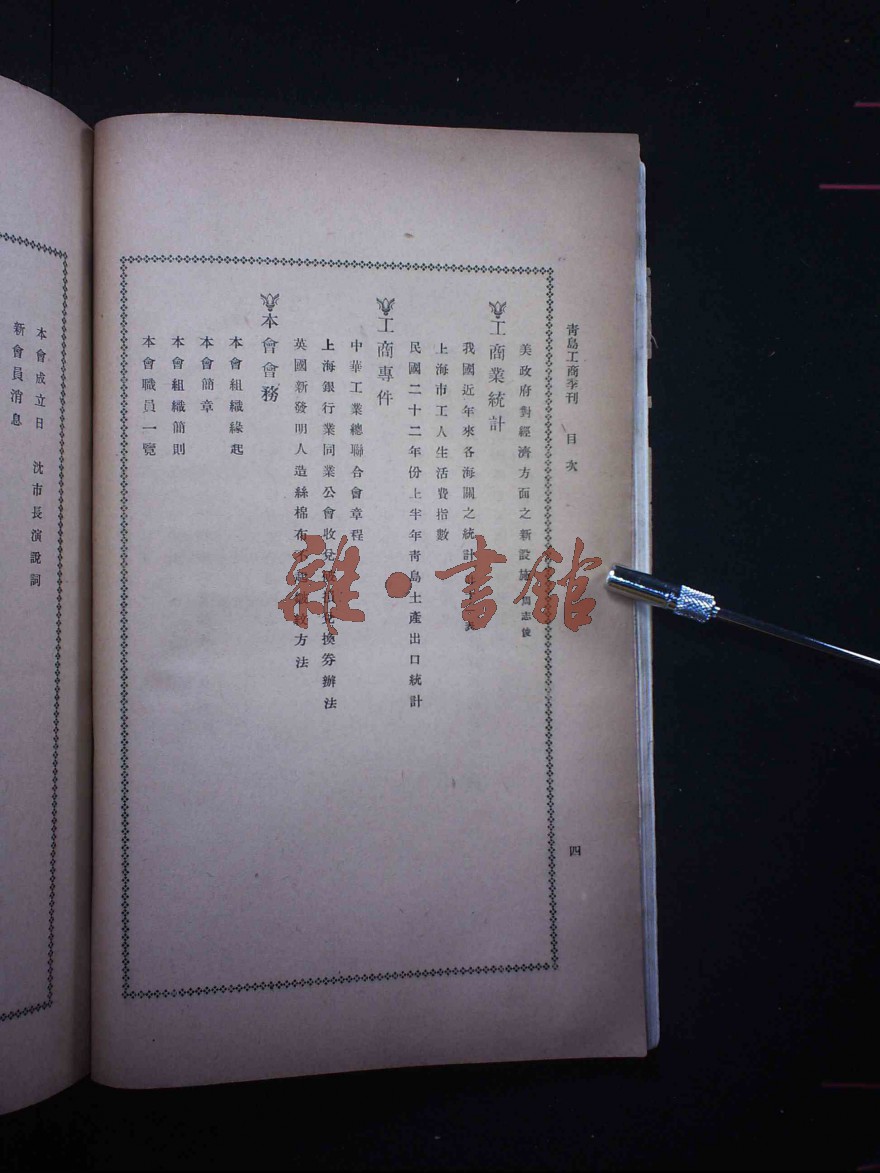 青島工商季刊 目次
四
美政府對經濟方面之新設施 周志俊
工商業統計
我國近年來各海關之統計
上海市工人生活費指數
民國二十二年份上半年青島土產出口統計
工商專件
中華工業總聯合會章程
上海銀行業同業公會收兌兌換券辦法
英國新發明人造絲棉布不紋方法
本會會務
本會組織緣起
本會簡章
本會組織簡則
本會職員一覽
本會成立日 沈市長演說詞
新會員消息
雜·書館